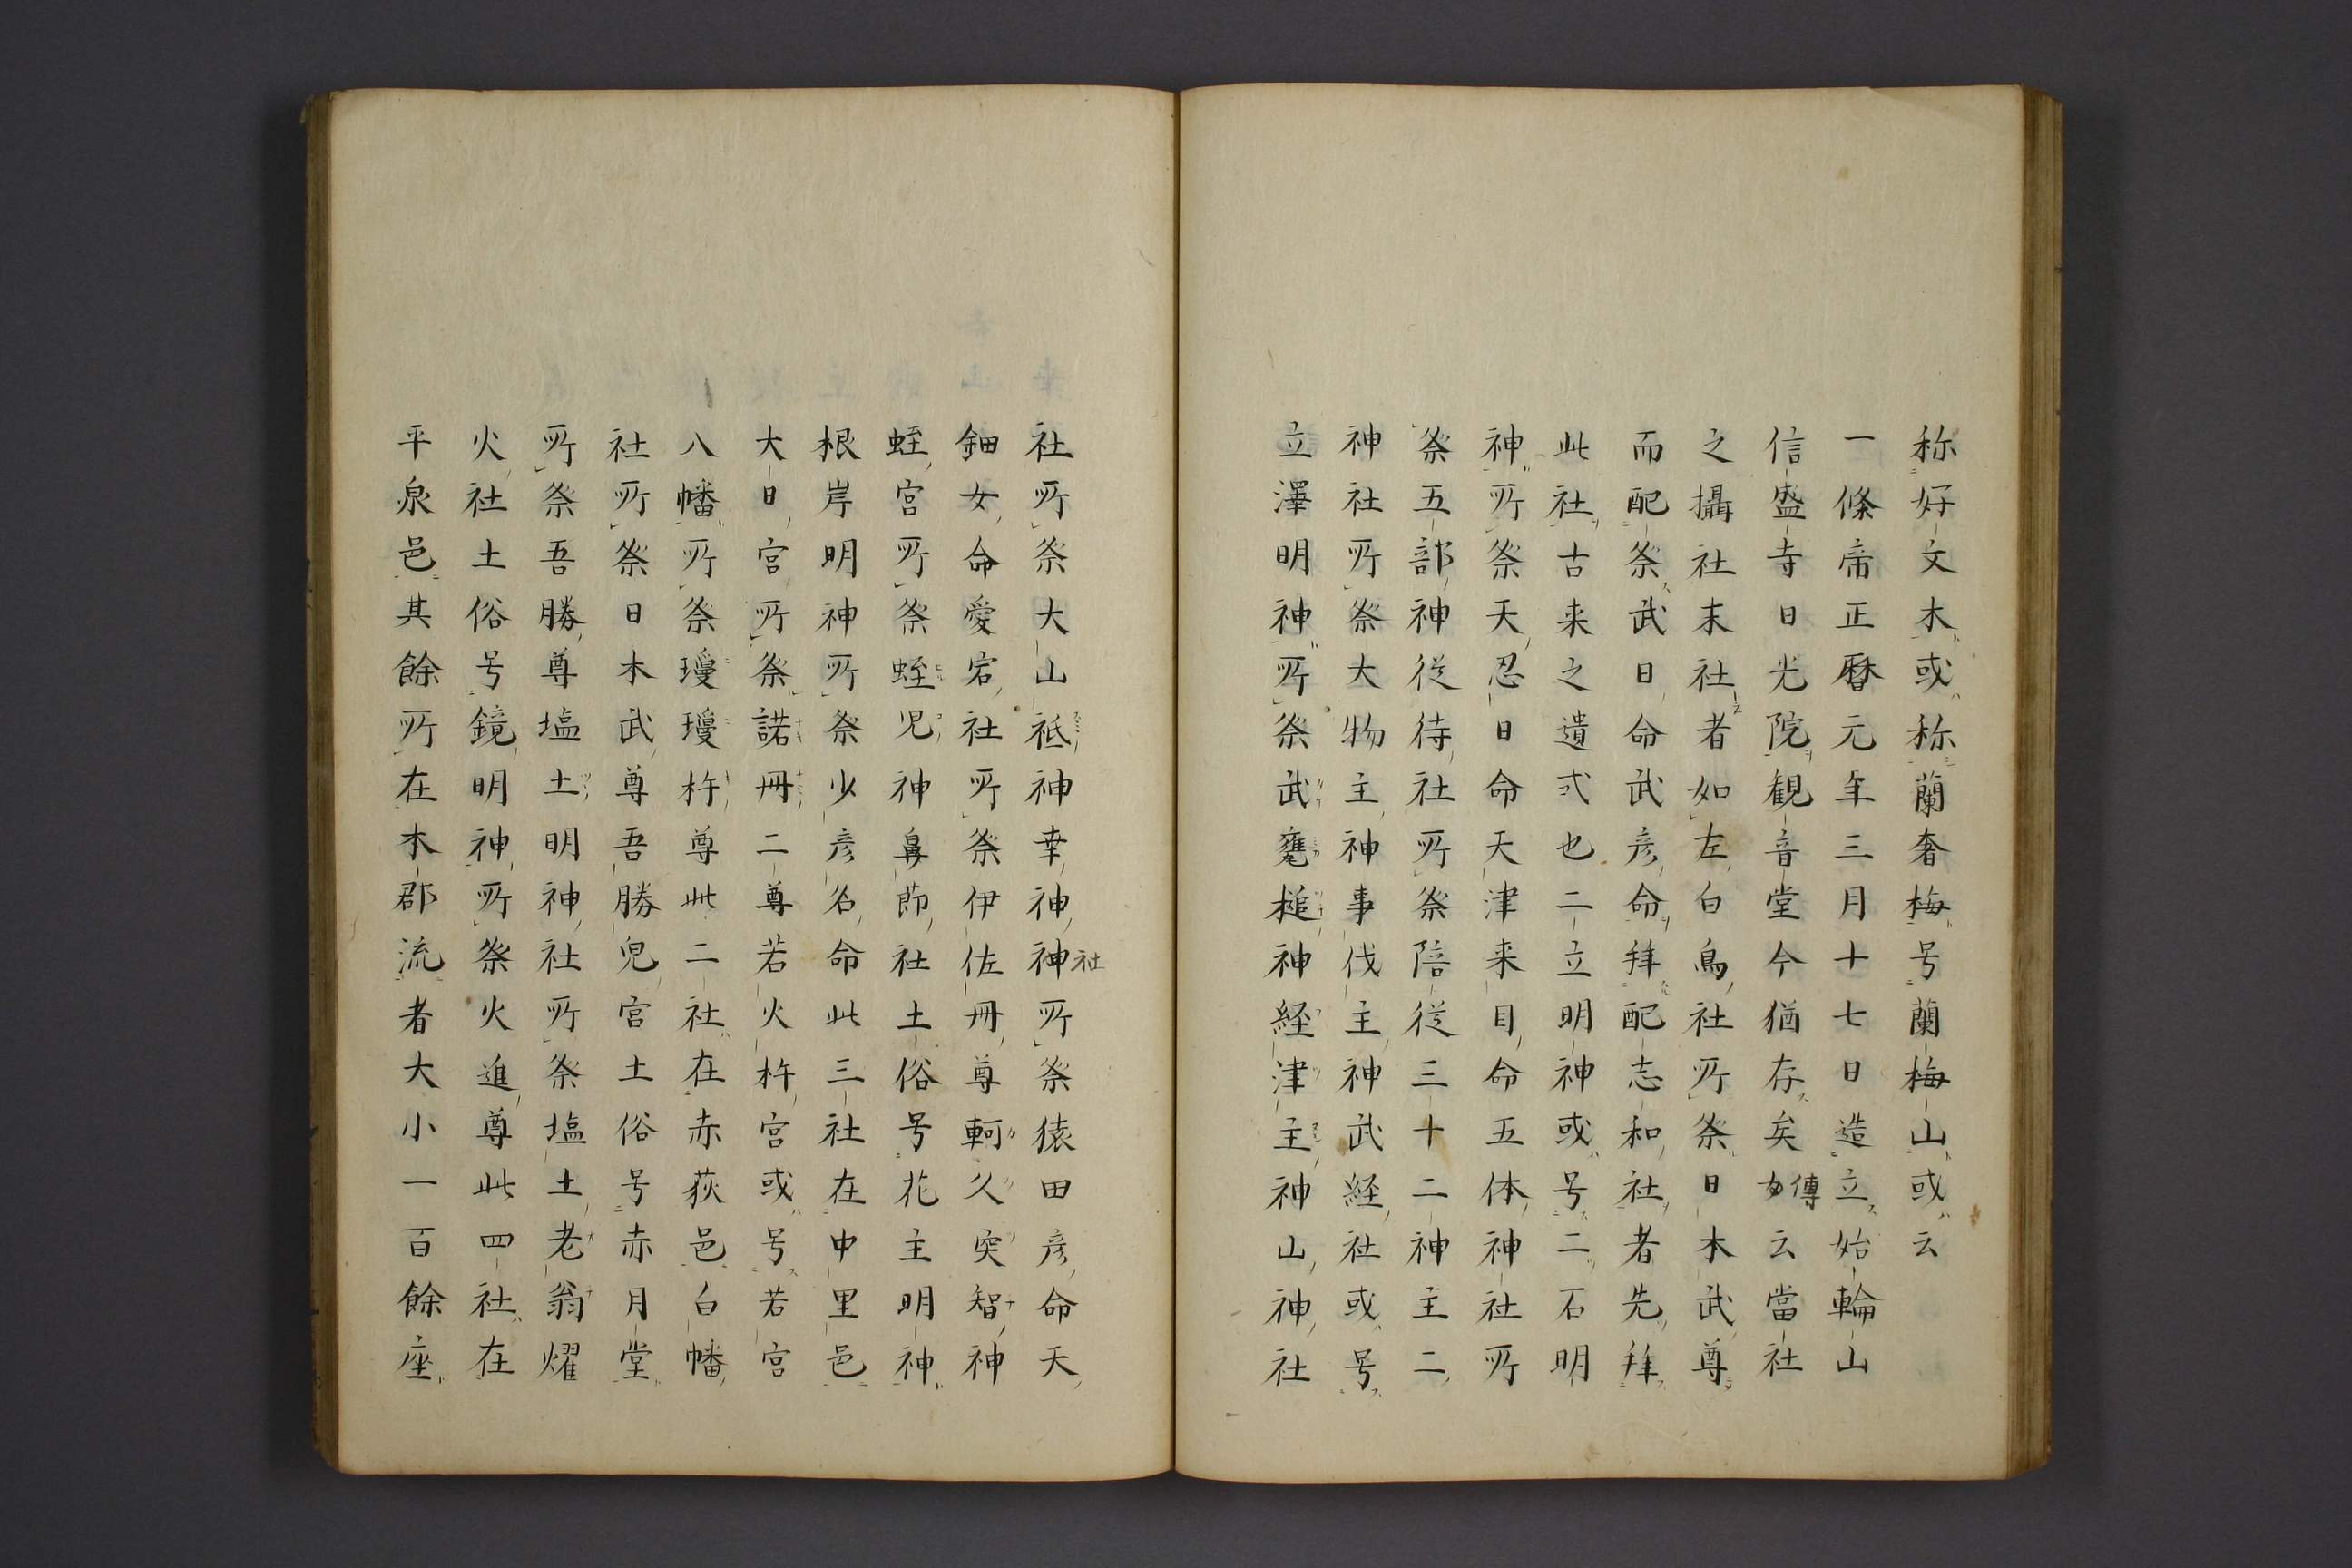 称好文木或称蘭奢梅号蘭梅山或云
一條帝正暦元年三月十七日造立始輪山
信盛寺日光院観音堂今猶存矣傳云當社
之攝社末社者如左白鳥社所祭日本武尊
而配祭武日命武彦命拜配志和社者先拜
此社古来之遺式也二立明神或号二石明
神所祭天忍日命天津来目命五体神社所
祭五部神從待社所祭陪從三十二神主二
神社所祭大物主神事伐主神武経社或号
立澤明神所祭武甕槌神経津主神山神社
社所祭大山祗神幸神社神所祭猿田彦命天
鈿女命愛宕社所祭伊佐冊尊軻久突智神
蛭宮所祭蛭児神鼻莭社土俗号花主明神
根岸明神所祭少彦名命此三社在中里邑
大日宮所祭諾冊二尊若火杵宮或号若宮
八幡所祭瓊瓊杵尊此二社在赤荻邑白幡
社所祭日本武尊吾勝兒宮土俗号赤月堂
所祭吾勝尊塩土明神社所祭塩土老翁燿
火社土俗号鏡明神所祭火進尊此四社在
平泉邑其餘所在本郡流者大小一百餘座